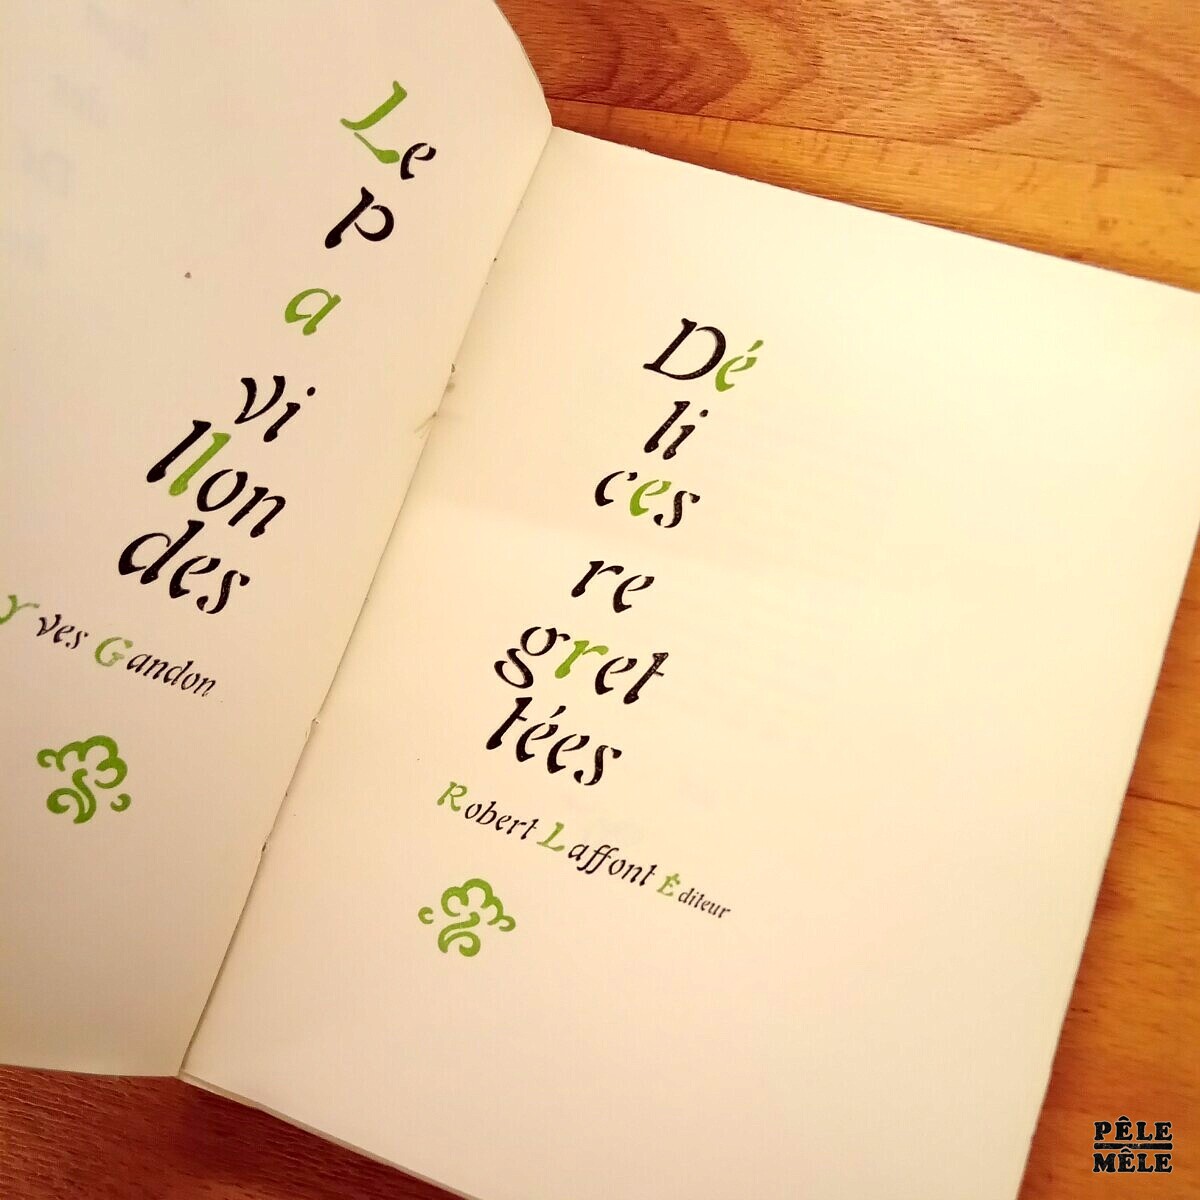 Le
p
a
vi
llon
des
Yves Gandon
Dé
li
ces
re
gret
tées
Robert Laffont Éditeur
PÊLE
MÊLE